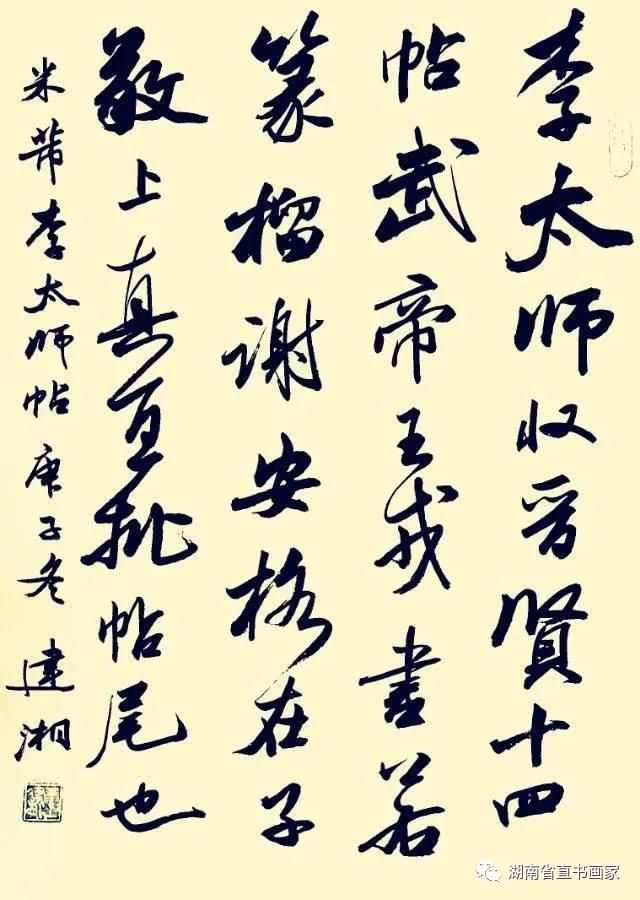 李太师收晋贤十四
帖武帝王戎書若
篆榴谢安格在子
敬上真宜批帖尾也
米芾李太师帖庚子冬建湘
湖南省直书画家